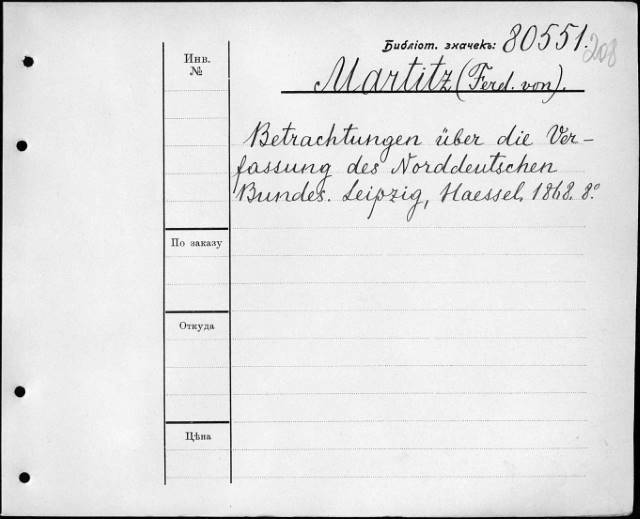 Библіот. значекъ: 80551.
208
Инв.
№
Martitz (Ferd. von).
Betrachtungen über die Ver-
fassung des Norddeutschen
Bundes. Leipzig, Haessel. 1868. 8°
По заказу
Откуда
Цѣна